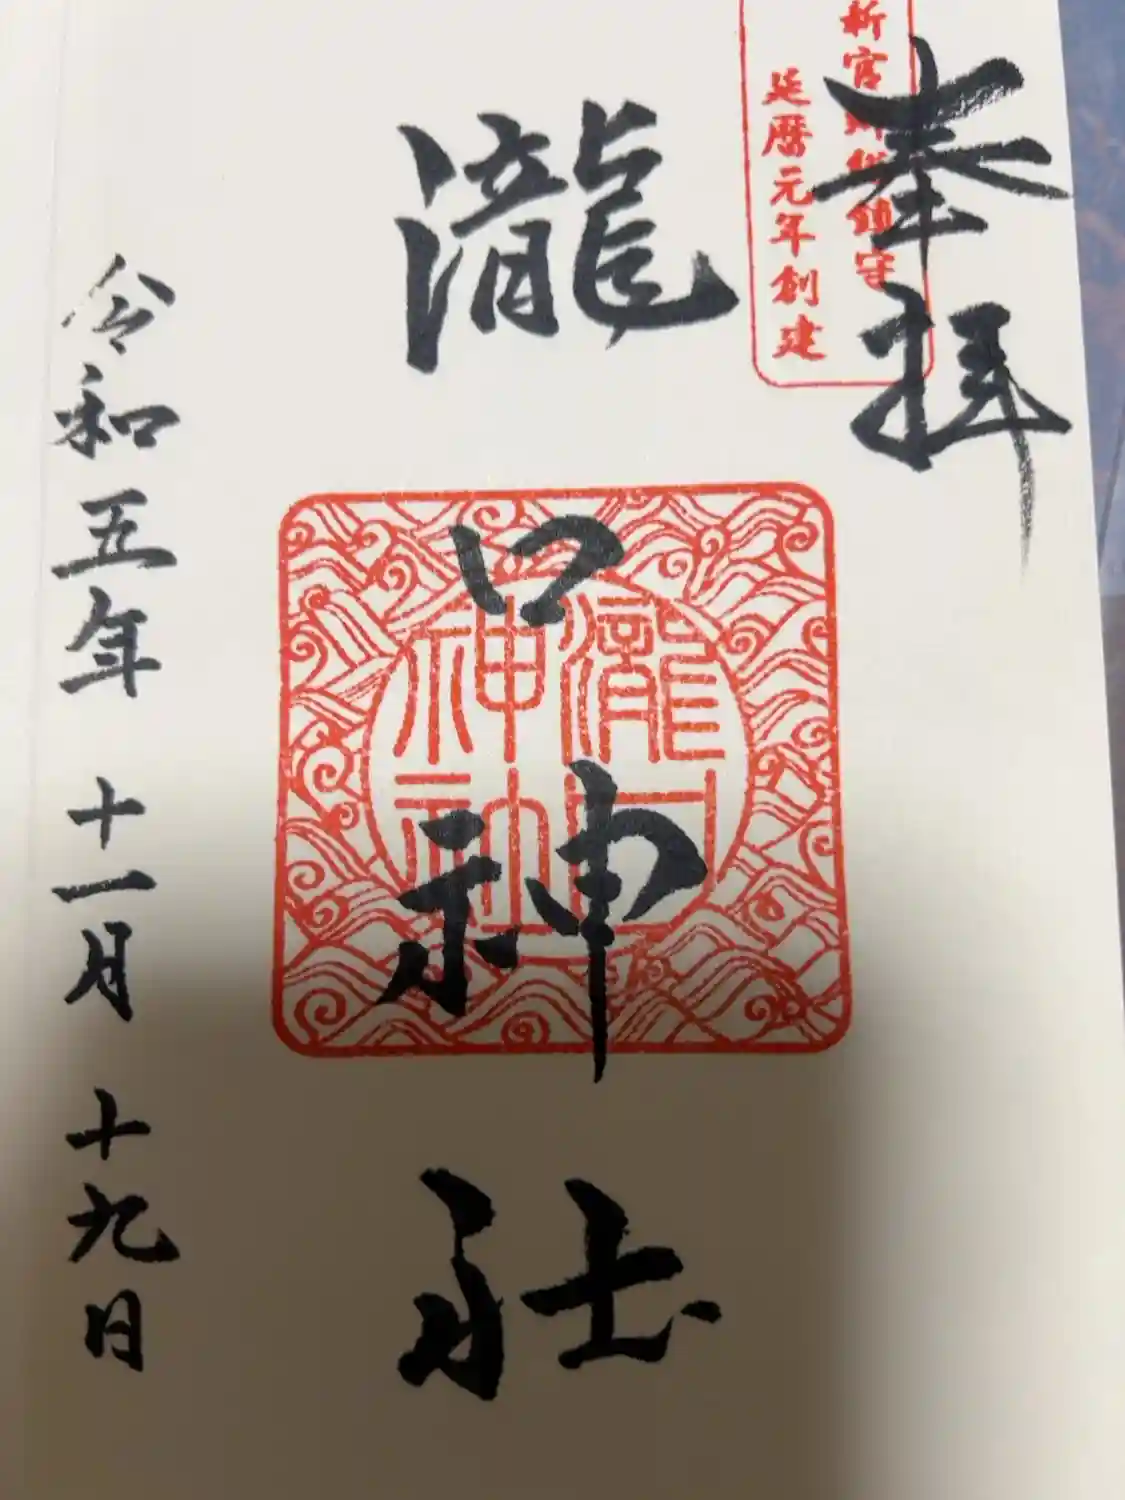 奉拝
新宮
鎮守
延暦元年創建
瀧口神社
瀧口
神社
令和五年 十一月 十九日